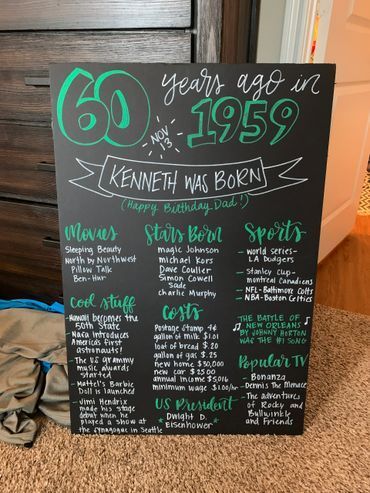 60 years ago in
NOV 3
1959
KENNETH WAS BORN
(Happy Birthday Dad!)
Movies
Sleeping Beauty
North by Northwest
Pillow Talk
Ben-Hur
Stars Born
magic Johnson
michael Kors
Dave Coulier
Simon Cowell
Sade
charlie Murphy
Sports
- world series-
LA Dodgers
- Stanley Cup-
montreal Canadiens
- NFL- Baltimore Colts
- NBA- Boston Celtics
Cool Stuff
- Hawaii becomes the
50th State
- Naca introduces
America's first
astronauts!
- The US grammy
music awards
started
- Mattel's Barbie
Doll is launched
- Jimi Hendrix
made his stage
debut when he
played a show at
the synagogue in Seattle
Costs
Postage Stamp 4¢
gallon of milk $1.01
loaf of bread $.20
gallon of gas $.25
new home $30,000
new car $25.00
annual income $5,016
minimum wage $1.00/hr
US President
* Dwight D. *
Eisenhower
♫ THE BATTLE OF ♪
NEW ORLEANS
BY JOHNNY HORTON
WAS THE #1 SONG
Popular TV
- Bonanza
- Dennis The Menace
- The adventures
of Rocky and
Bullwinkle
and Friends